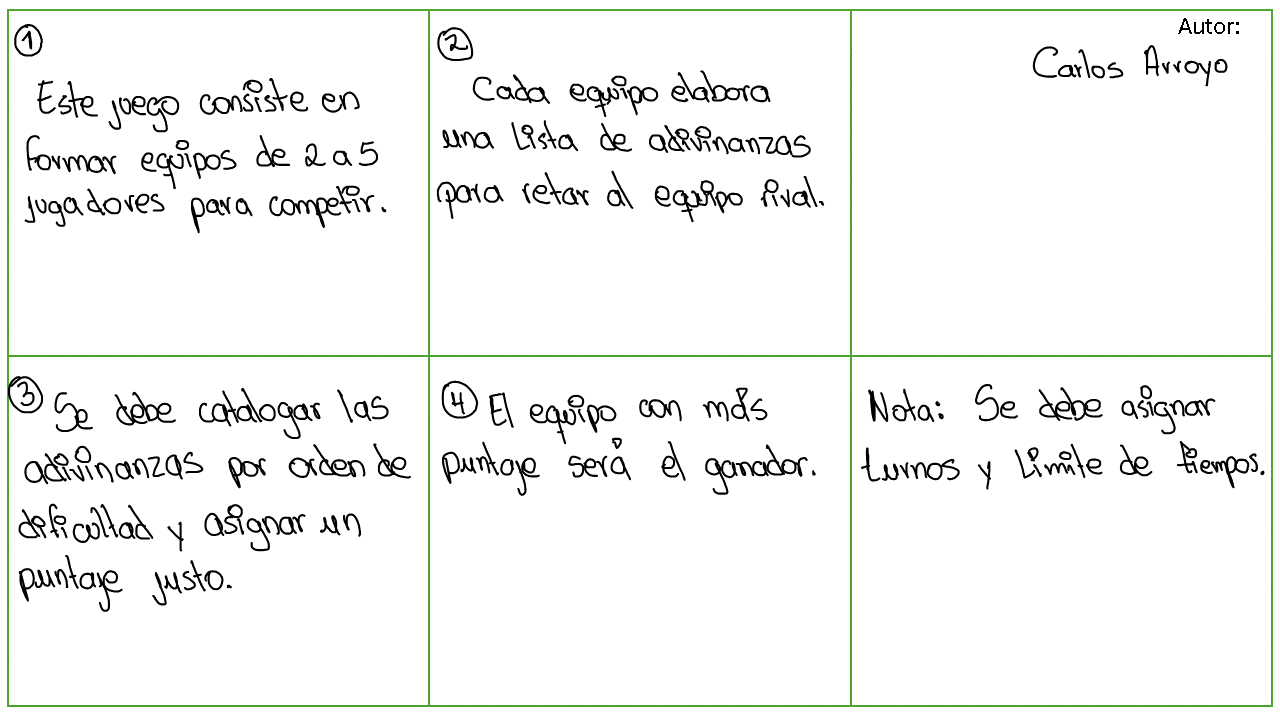 ①
Este juego consiste en
formar equipos de 2 a 5
jugadores para competir.
②
Cada equipo elabora
una lista de adivinanzas
para retar al equipo rival.
Autor:
Carlos Arroyo
③ Se debe catalogar las
adivinanzas por orden de
dificultad y asignar un
puntaje justo.
④ El equipo con más
puntaje será el ganador.
Nota: Se debe asignar
turnos y Limite de tiempos.